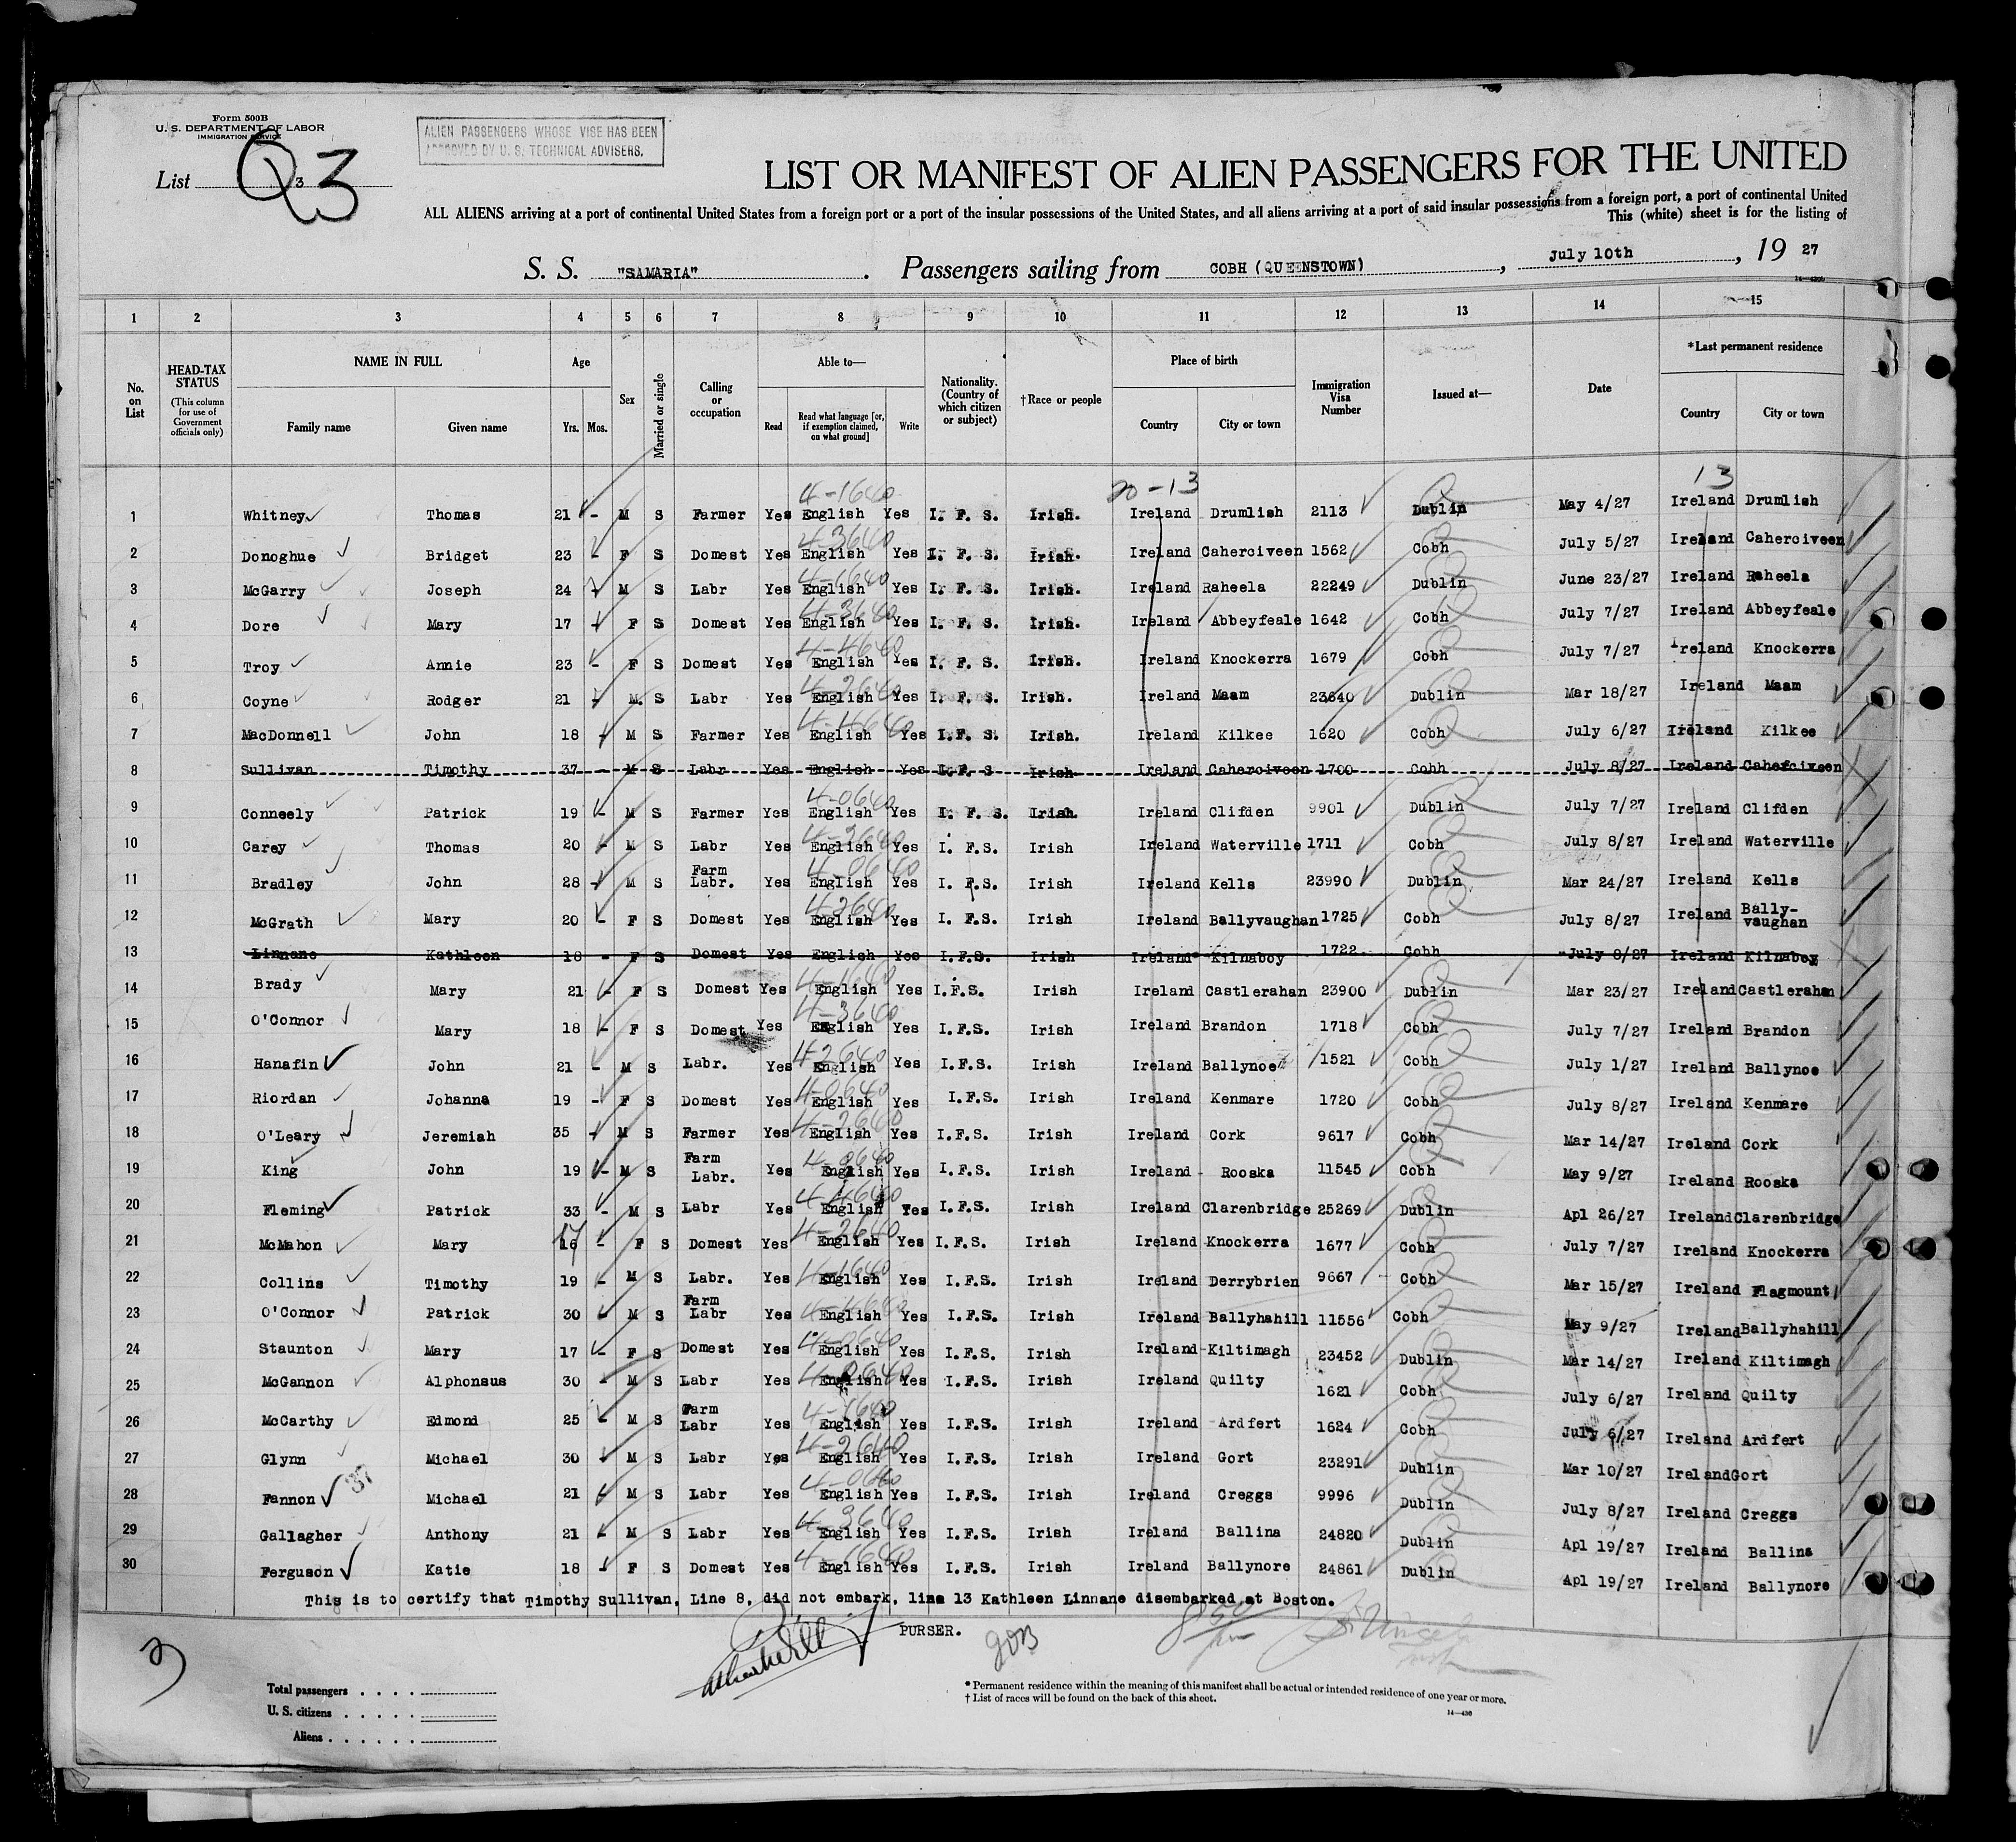 Form 500B
U. S. DEPARTMENT OF LABOR
IMMIGRATION SERVICE
ALIEN PASSENGERS WHOSE VISE HAS BEEN
APPROVED BY U. S. TECHNICAL ADVISERS.
List 3
3
LIST OR MANIFEST OF ALIEN PASSENGERS FOR THE UNITED
ALL ALIENS arriving at a port of continental United States from a foreign port or a port of the insular possessions of the United States, and all aliens arriving at a port of said insular possessions from a foreign port, a port of continental United
This (white) sheet is for the listing of
S. S. "SAMARIA". Passengers sailing from COBH (QUEENSTOWN), July 10th, 19 27
14—4300
1 2 3 4 5 6 7 8 9 10 11 12 13 14 15
No. on List HEAD-TAX STATUS (This column for use of Government officials only) NAME IN FULL Family name Given name Age Yrs. Mos. Sex Married or single Calling or occupation Able to— Read Read what language [or, if exemption claimed, on what ground] Write Nationality. (Country of which citizen or subject) †Race or people Place of birth Country City or town Immigration Visa Number Issued at— Date *Last permanent residence Country City or town
4-1640 20-13 13
1 Whitney Thomas 21 - M S Farmer Yes English Yes I. F. S. Irish. Ireland Drumlish 2113 Dublin May 4/27 Ireland Drumlish
4-3640
2 Donoghue Bridget 23 - F S Domest Yes English Yes I. F. S. Irish. Ireland Caherciveen 1562 Cobh July 5/27 Ireland Caherciveen
4-1640
3 McGarry Joseph 24 - M S Labr Yes English Yes I. F. S. Irish. Ireland Raheela 22249 Dublin June 23/27 Ireland Raheela
4-3640
4 Dore Mary 17 - F S Domest Yes English Yes I. F. S. Irish. Ireland Abbeyfeale 1642 Cobh July 7/27 Ireland Abbeyfeale
4-4640
5 Troy Annie 23 - F S Domest Yes English Yes I. F. S. Irish. Ireland Knockerra 1679 Cobh July 7/27 Ireland Knockerra
4-2640
6 Coyne Rodger 21 - M. S Labr Yes English Yes I. F. S. Irish. Ireland Maam 23640 Dublin Mar 18/27 Ireland Maam
4-4640
7 MacDonnell John 18 - M S Farmer Yes English Yes I.F. S. Irish. Ireland Kilkee 1620 Cobh July 6/27 Ireland Kilkee
8 Sullivan Timothy 37 - M S Labr Yes English Yes I.F. S Irish Ireland Caherciveen 1700 Cobh July 8/27 Ireland Caherciveen
4-0640
9 Conneely Patrick 19 - M S Farmer Yes English Yes I. F. S. Irish Ireland Clifden 9901 Dublin July 7/27 Ireland Clifden
4-2640
10 Carey Thomas 20 - M S Labr Yes English Yes I. F.S. Irish Ireland Waterville 1711 Cobh July 8/27 Ireland Waterville
4-0640
11 Bradley John 28 - M S Farm Labr. Yes English Yes I. F.S. Irish Ireland Kells 23990 Dublin Mar 24/27 Ireland Kells
4-2640
12 McGrath Mary 20 - F S Domest Yes English Yes I. F.S. Irish Ireland Ballyvaughan 1725 Cobh July 8/27 Ireland Bally-vaughan
13 Linnane Kathleen 18 - F S Domest Yes English Yes I.F.S. Irish Ireland Kilnaboy 1722 Cobh July 8/27 Ireland Kilnaboy
4-1640
14 Brady Mary 21 - F S Domest Yes English Yes I.F.S. Irish Ireland Castlerahan 23900 Dublin Mar 23/27 Ireland Castlerahan
4-3640
15 O'Connor Mary 18 - F S Domest Yes English Yes I.F.S. Irish Ireland Brandon 1718 Cobh July 7/27 Ireland Brandon
4-2640
16 Hanafin John 21 - M S Labr. Yes English Yes I.F.S. Irish Ireland Ballynoe 1521 Cobh July 1/27 Ireland Ballynoe
4-0640
17 Riordan Johanna 19 - F S Domest Yes English Yes I.F.S. Irish Ireland Kenmare 1720 Cobh July 8/27 Ireland Kenmare
4-2640
18 O'Leary Jeremiah 35 - M S Farmer Yes English Yes I.F.S. Irish Ireland Cork 9617 Cobh Mar 14/27 Ireland Cork
19 King John 19 - M S Farm Labr. Yes English Yes I.F.S. Irish Ireland Rooska 11545 Cobh May 9/27 Ireland Rooska
4-4640
20 Fleming Patrick 33 - M S Labr Yes English Yes I.F.S. Irish Ireland Clarenbridge 25269 Dublin Apl 26/27 Ireland Clarenbridge
17 4-2640
21 McMahon Mary 16 - F S Domest Yes English Yes I.F.S. Irish Ireland Knockerra 1677 Cobh July 7/27 Ireland Knockerra
4-1640
22 Collins Timothy 19 - M S Labr. Yes English Yes I.F.S. Irish Ireland Derrybrien 9667 Cobh Mar 15/27 Ireland Flagmount
4-4640
23 O'Connor Patrick 30 - M S Farm Labr Yes English Yes I.F.S. Irish Ireland Ballyhahill 11556 Cobh May 9/27 Ireland Ballyhahill
4-0640
24 Staunton Mary 17 - F S Domest Yes English Yes I.F.S. Irish Ireland Kiltimagh 23452 Dublin Mar 14/27 Ireland Kiltimagh
4-0640
25 McGannon Alphonsus 30 - M S Labr Yes English Yes I.F.S. Irish Ireland Quilty 1621 Cobh July 6/27 Ireland Quilty
4-1640
26 McCarthy Edmond 25 - M S Farm Labr Yes English Yes I.F.S. Irish Ireland Ardfert 1624 Cobh July 6/27 Ireland Ardfert
4-2640
27 Glynn Michael 30 - M S Labr Yes English Yes I.F.S. Irish Ireland Gort 23291 Dublin Mar 10/27 Ireland Gort
37
28 Fannon Michael 21 - M S Labr Yes English Yes I.F.S. Irish Ireland Creggs 9996 Dublin July 8/27 Ireland Creggs
4-3640
29 Gallagher Anthony 21 - M S Labr Yes English Yes I.F.S. Irish Ireland Ballina 24820 Dublin Apl 19/27 Ireland Ballina
4-1640
30 Ferguson Katie 18 - F S Domest Yes English Yes I.F.S. Irish Ireland Ballynore 24861 Dublin Apl 19/27 Ireland Ballynore
This is to certify that Timothy Sullivan, Line 8, did not embark, line 13 Kathleen Linnane disembarked at Boston.
PURSER.
3
Total passengers . . . .
U. S. citizens . . . . .
Aliens . . . . . .
* Permanent residence within the meaning of this manifest shall be actual or intended residence of one year or more.
† List of races will be found on the back of this sheet.
14—430